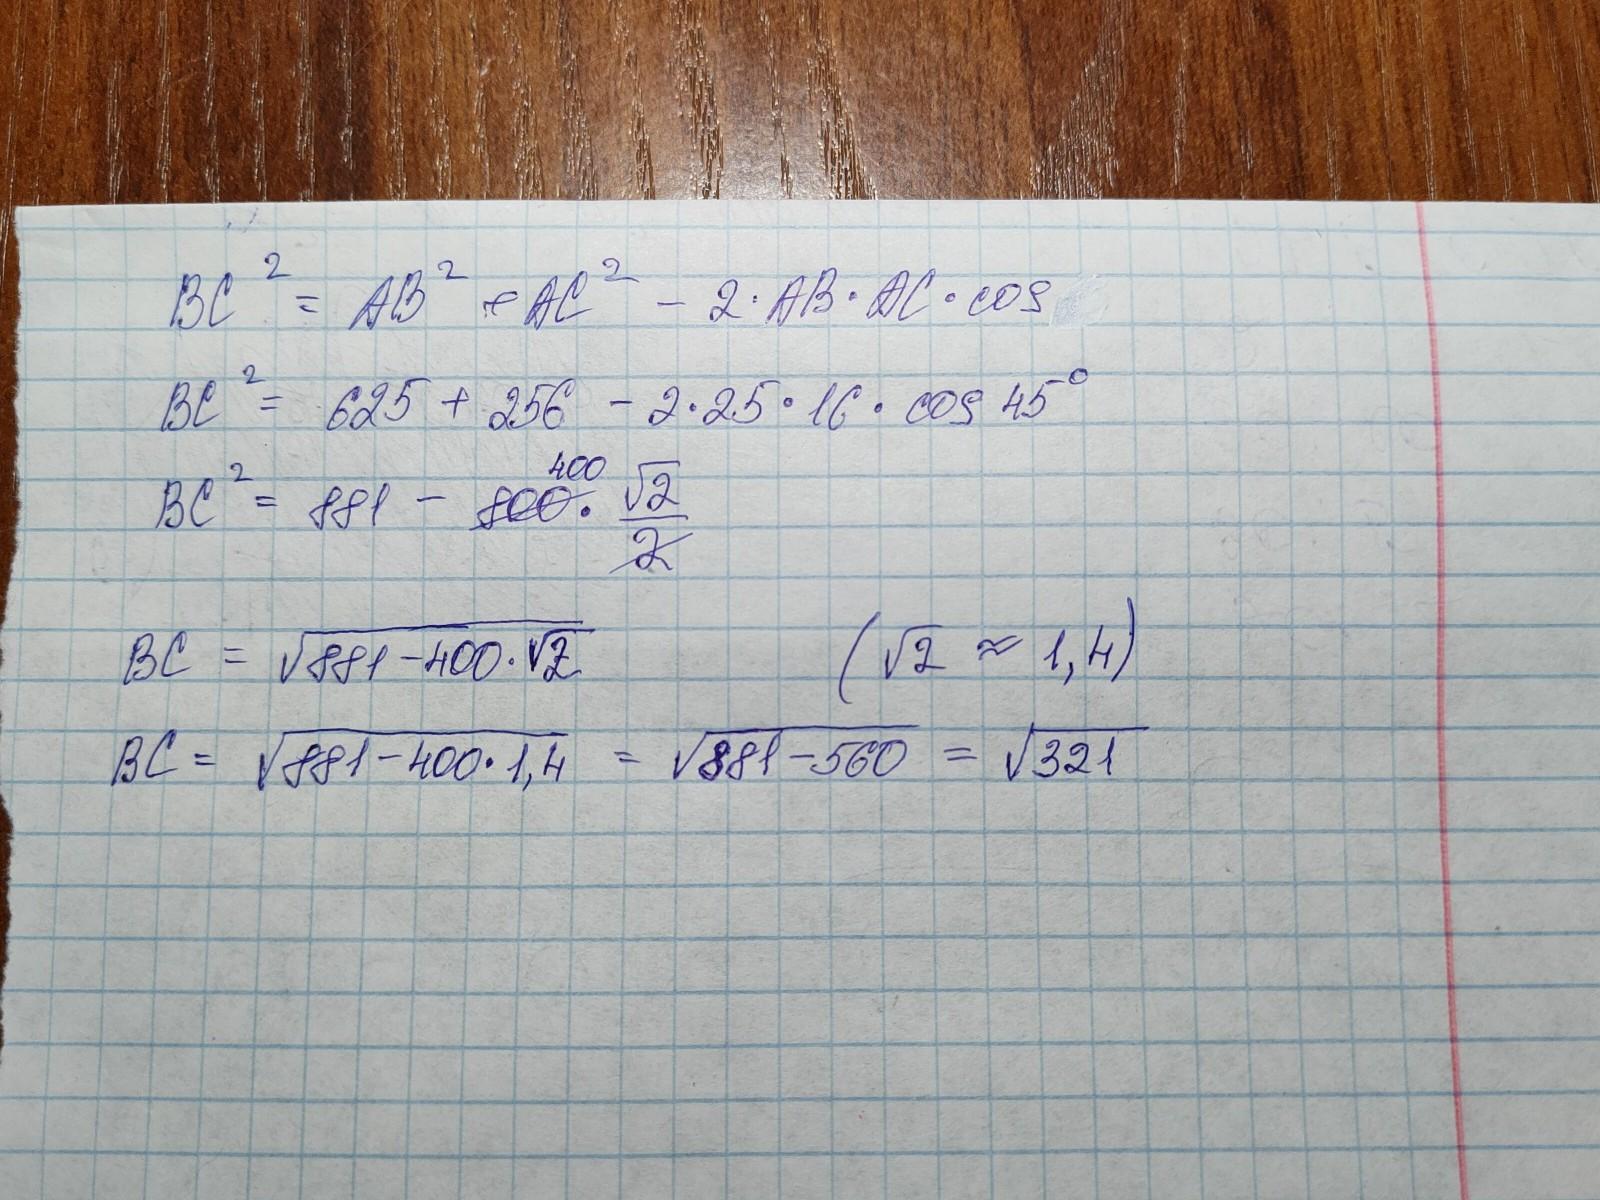 BC² = AB² + AC² - 2·AB·AC·cos
BC² = 625 + 256 - 2·25·16·cos 45°
BC² = 881 - 800 400 · √2/2
BC = √(881-400·√2) (√2 ≈ 1,4)
BC = √(881-400·1,4) = √(881-560) = √321